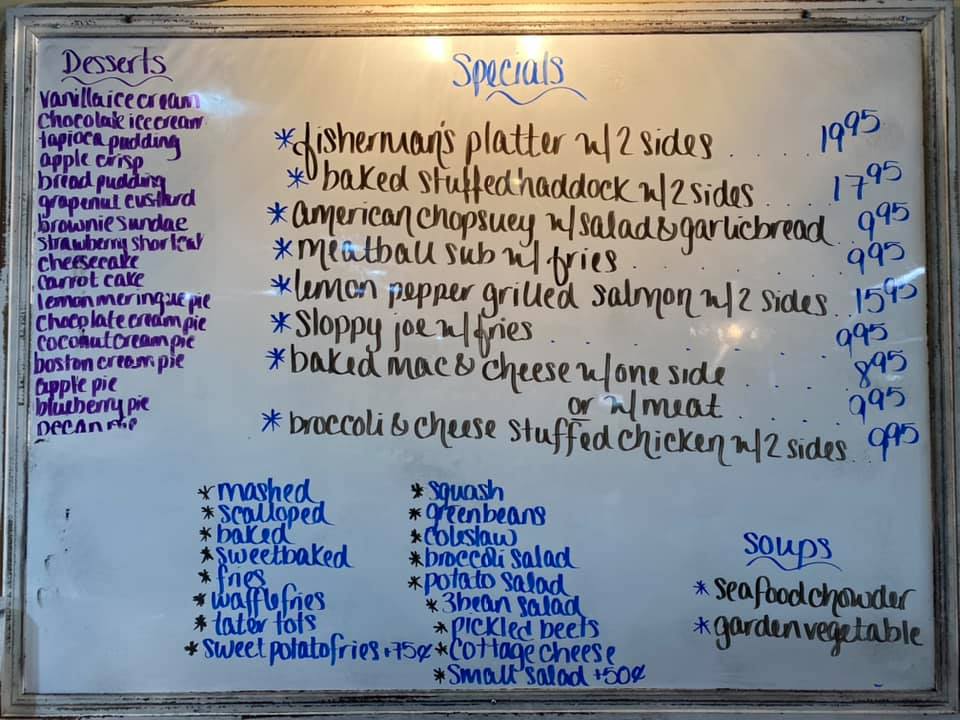 Desserts
vanilla ice cream
chocolate ice cream
tapioca pudding
apple crisp
bread pudding
grapenut custard
brownie sundae
strawberry shortcak
cheesecake
carrot cake
lemon meringue pie
chocolate cream pie
coconut cream pie
boston cream pie
apple pie
blueberry pie
pecan pie
Specials
*fisherman's platter w/2 sides . . . . 19 95
* baked stuffed haddock w/2 sides . . . 17 95
*american chopsuey w/salad & garlicbread . 9 95
*meatball sub w/ fries . . . . . . 9 95
*lemon pepper grilled salmon w/2 sides . 15 95
*sloppy joe w/fries . . . . . . . 9 95
*baked mac & cheese w/one side . . . . 8 95
or w/meat . . . . 9 95
* broccoli & cheese stuffed chicken w/2 sides . 9 95
*mashed
*scalloped
*baked
*sweetbaked
*fries
*waffle fries
*tater tots
*sweet potato fries +75¢
*squash
*greenbeans
*coleslaw
*broccoli salad
*potato salad
*3bean salad
*pickled beets
*cottage cheese
*small salad +50¢
Soups
*seafood chowder
*garden vegetable